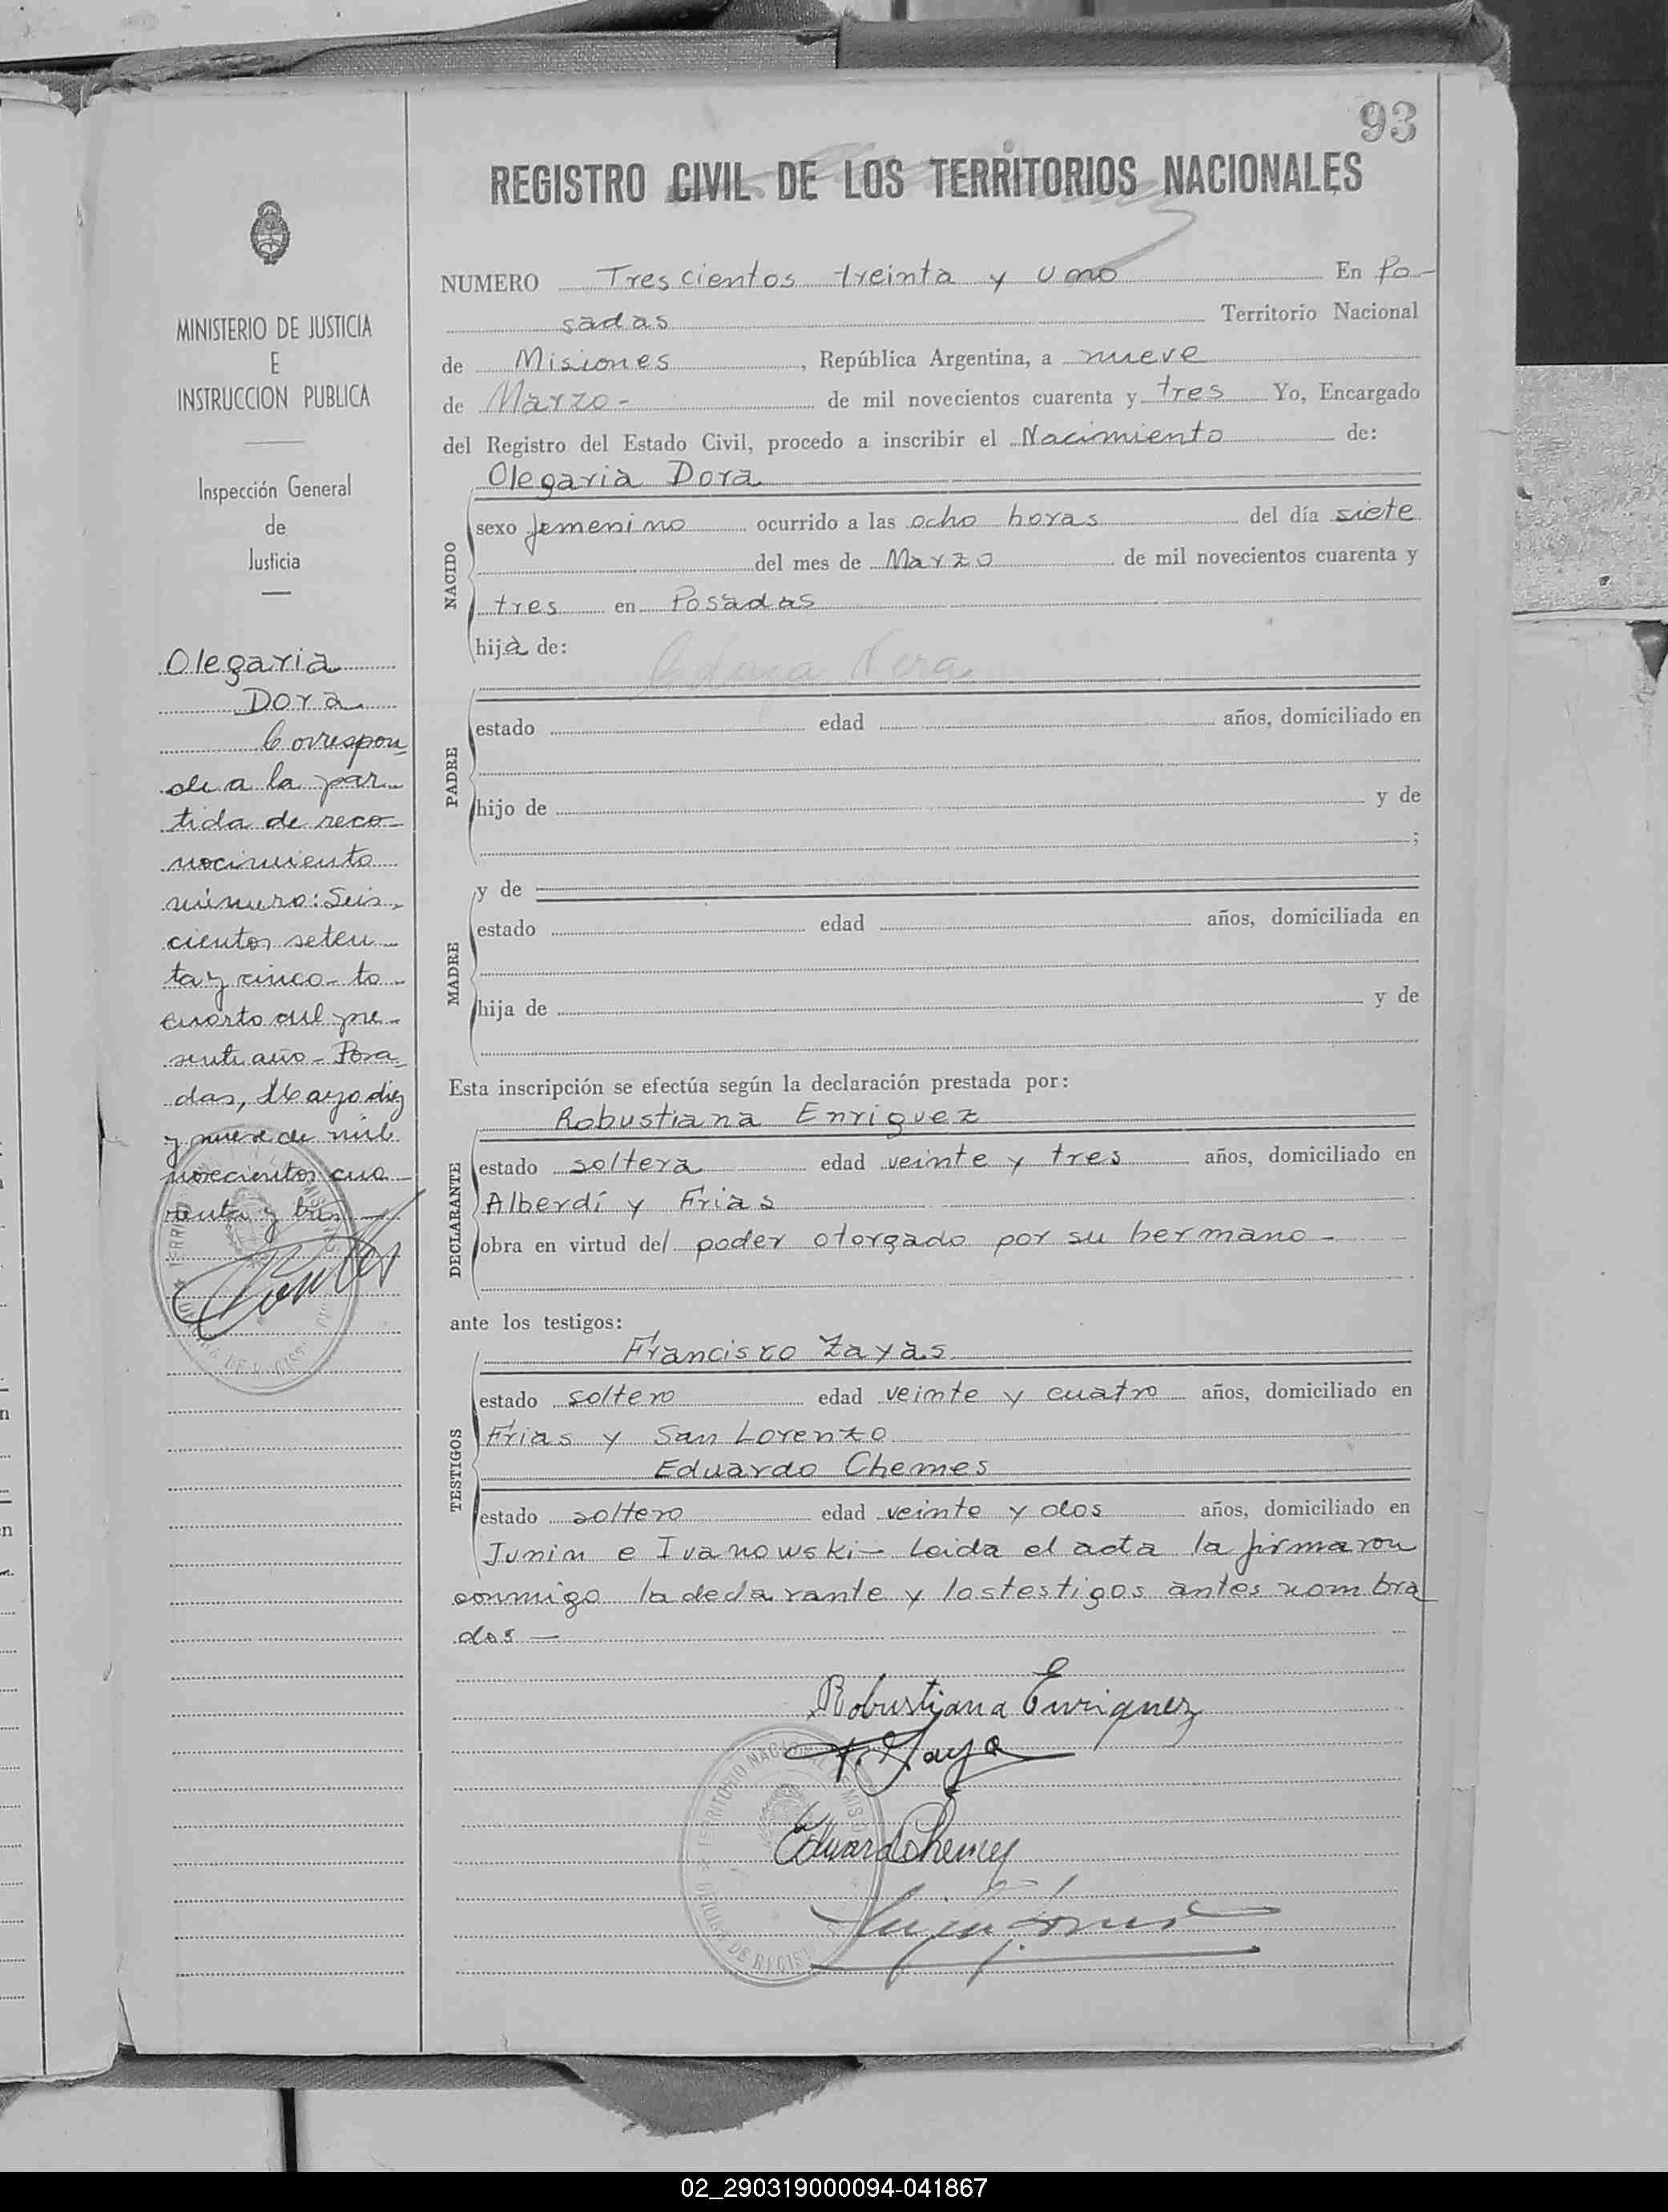 93
REGISTRO CIVIL DE LOS TERRITORIOS NACIONALES
NUMERO Trescientos treinta y uno En Po-
sadas Territorio Nacional
de Misiones, República Argentina, a nueve
de Marzo- de mil novecientos cuarenta y tres Yo, Encargado
del Registro del Estado Civil, procedo a inscribir el Nacimiento de:
Olegaria Dora
NACIDO
sexo femenino ocurrido a las ocho horas del día siete
del mes de Marzo de mil novecientos cuarenta y
tres en Posadas
hija de:
PADRE
estado edad años, domiciliado en
hijo de y de
;
MADRE
y de
estado edad años, domiciliada en
hija de y de
Esta inscripción se efectúa según la declaración prestada por:
Robustiana Enriquez
DECLARANTE
estado soltera edad veinte y tres años, domiciliado en
Alberdi y Frias
obra en virtud del poder otorgado por su hermano -
ante los testigos:
Francisco Zayas
TESTIGOS
estado soltero edad veinte y cuatro años, domiciliado en
Frias y San Lorenzo
Eduardo Chemes
estado soltero edad veinte y dos años, domiciliado en
Junin e Ivanowski- Leida el acta la firmaron
conmigo la declarante y los testigos antes nombra
dos —
Robustiana Enriquez
Eduardo Chemes
MINISTERIO DE JUSTICIA
E
INSTRUCCION PUBLICA
Inspección General
de
Justicia
Olegaria
Dora
Correspon
de a la par
tida de reco-
nocimiento
número: Seis
cientos seten-
ta y cinco- to-
cuarto del pre-
sente año- Posa
das, Mayo diez
y nueve de mil
novecientos cua
renta y tres —
02_290319000094-041867